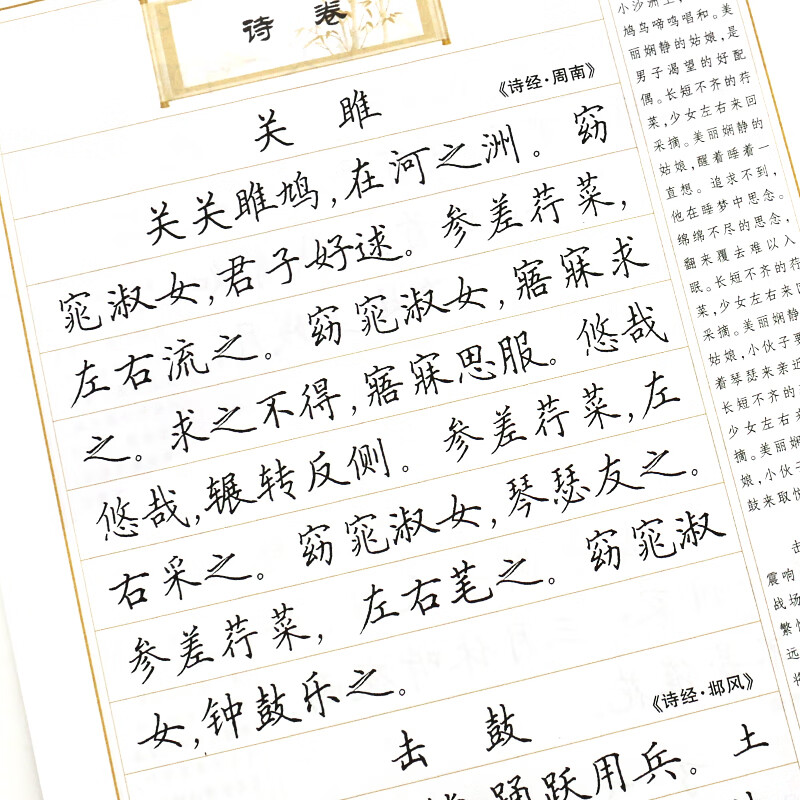 诗卷
《诗经·周南》
关雎
关关雎鸠,在河之洲。窈
窕淑女,君子好逑。参差荇菜,
左右流之。窈窕淑女,寤寐求
之。求之不得,寤寐思服。悠哉
悠哉,辗转反侧。参差荇菜,左
右采之。窈窕淑女,琴瑟友之。
参差荇菜,左右芼之。窈窕淑
女,钟鼓乐之。
《诗经·邶风》
击鼓
踊跃用兵。土
小沙洲上,
鸠鸟啼鸣唱和。美
丽娴静的姑娘,是
男子渴望的好配
偶。长短不齐的荇
菜,少女左右来回
采摘。美丽娴静的
姑娘,醒着睡着一
直想。追求不到,
他在睡梦中思念。
绵绵不尽的思念,
翻来覆去难以入
眠。长短不齐的荇
菜,少女左右来回
采摘。美丽娴静
姑娘,小伙子要
着琴瑟来亲近
长短不齐的
少女左右
摘。美丽娴
娘,小伙子
鼓来取悦
击
震响
战场
繁忙
远
将